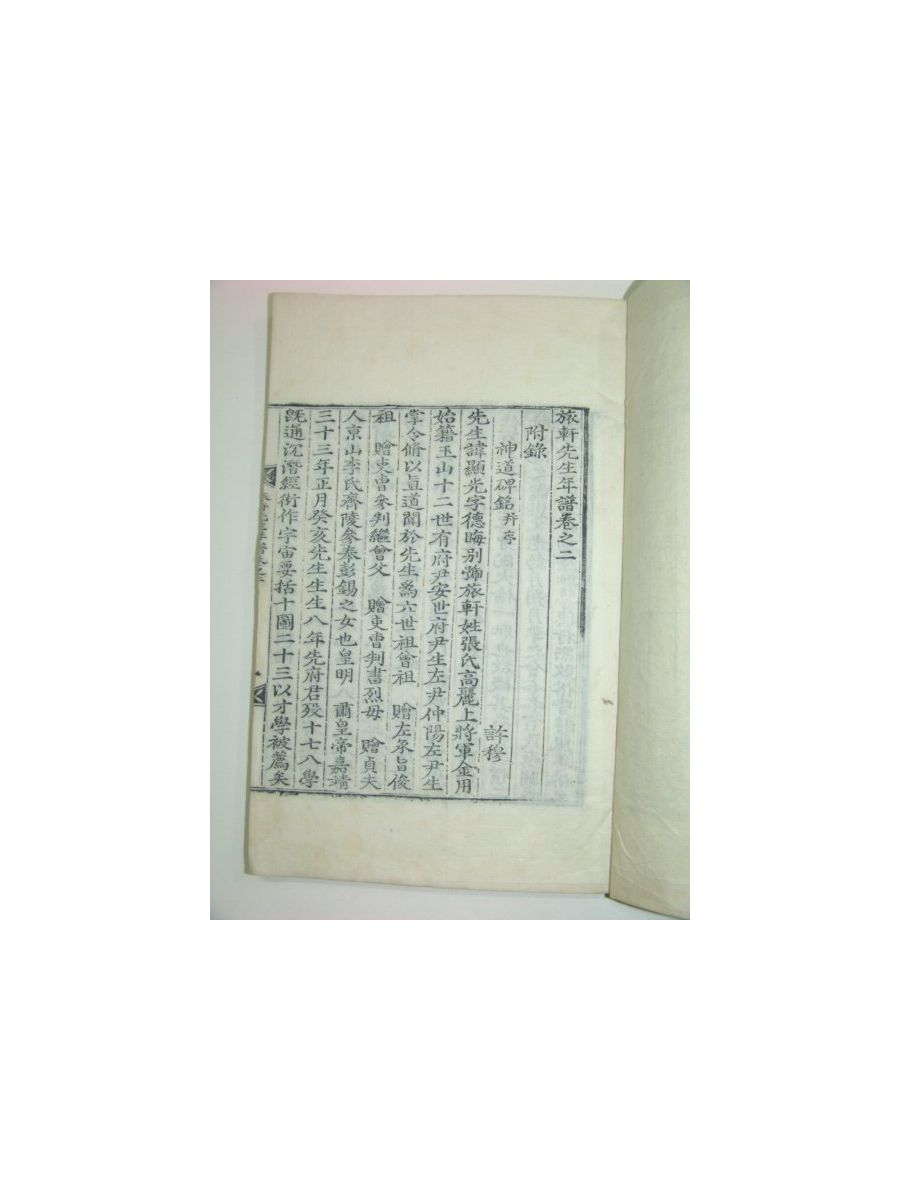 旅軒先生年譜卷之二
附錄
神道碑銘 并序
許穆
先生諱顯光字德晦别號旅軒姓張氏高麗上將軍金用
始籍玉山十二世有府尹安世府尹生左尹仲陽左尹生
掌令脩以直道聞於先生爲六世祖曾祖 贈左承旨俊
祖 贈吏曹參判繼曾父 贈吏曹判書烈毋 贈貞夫
人京山李氏齊陵參奉彭錫之女也皇明 肅皇帝嘉靖
三十三年正月癸亥先生生生八年先府君歿十七八學
旣通沉潛經術作宇宙要括十圖二十三以才學被薦矣